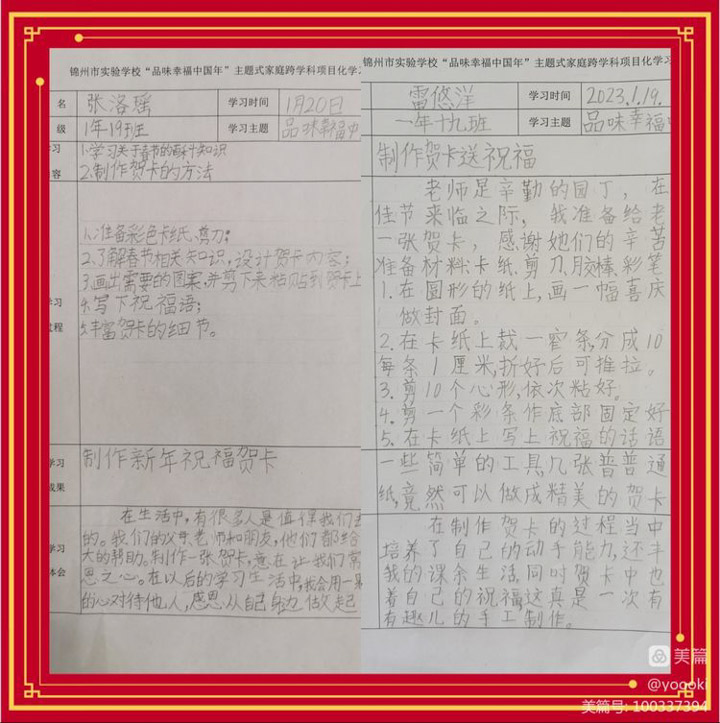 锦州市实验学校“品味幸福中国年”主题式家庭跨学科项目化学习
名 张洛瑶 学习时间 1月20日
级 1年19班 学习主题 品味幸福中
习 1.学习关于春节的相关知识
容 2.制作贺卡的方法
1.准备彩色卡纸、剪刀;
2.了解春节相关知识,设计贺卡内容;
3.画出需要的图案,并剪下来粘贴到贺卡上
学习 4.写下祝福语;
过程 5.丰富贺卡的细节。
学习 制作新年祝福贺卡
成果
在生活中,有很多人是值得我们去
的。我们的父母老师和朋友,他们都给
学习 大的帮助。制作一张贺卡,意在让我们常
体会 恩之心。在以后的学习生活中,我会用一颗
的心对待他人,感恩从自己身边做起
锦州市实验学校“品味幸福中国年”主题式家庭跨学科项目化学习
雷悠洋 学习时间 2023.1.19.
一年十九班 学习主题 品味幸福
制作贺卡送祝福
老师是辛勤的园丁,在
佳节来临之际,我准备给老
一张贺卡,感谢她们的辛苦
准备材料:卡纸.剪刀.胶棒.彩笔
1.在圆形的纸上,画一幅喜庆
做封面。
2.在卡纸上裁一窄条,分成10
每条1厘米,折好后可推拉。
3.剪10个心形,依次粘好。
4.剪一个彩条作底部固定好
5.在卡纸上写上祝福的话语
一些简单的工具几张普普通
纸,竟然可以做成精美的贺卡
在制作贺卡的过程当中
培养了自己的动手能力,还丰
我的课余生活,同时贺卡中也
着自己的祝福这真是一次有
有趣儿的手工制作。
美篇
@yogoki
美篇号: 100337394